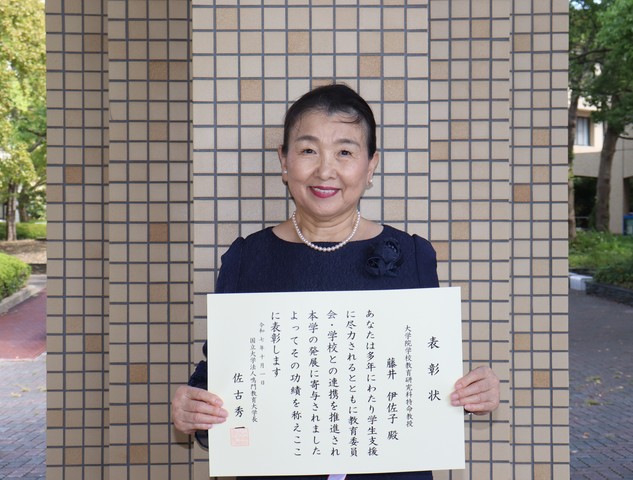 表彰状
大学院学校教育研究科特命教授
藤井 伊佐子 殿
あなたは多年にわたり学生支援
に尽力されるとともに教育委員
会・学校との連携を推進され
本学の発展に寄与されました
よってその功績を称えここ
に表彰します
令和七年十月一日
国立大学法人鳴門教育大学長
佐古秀一